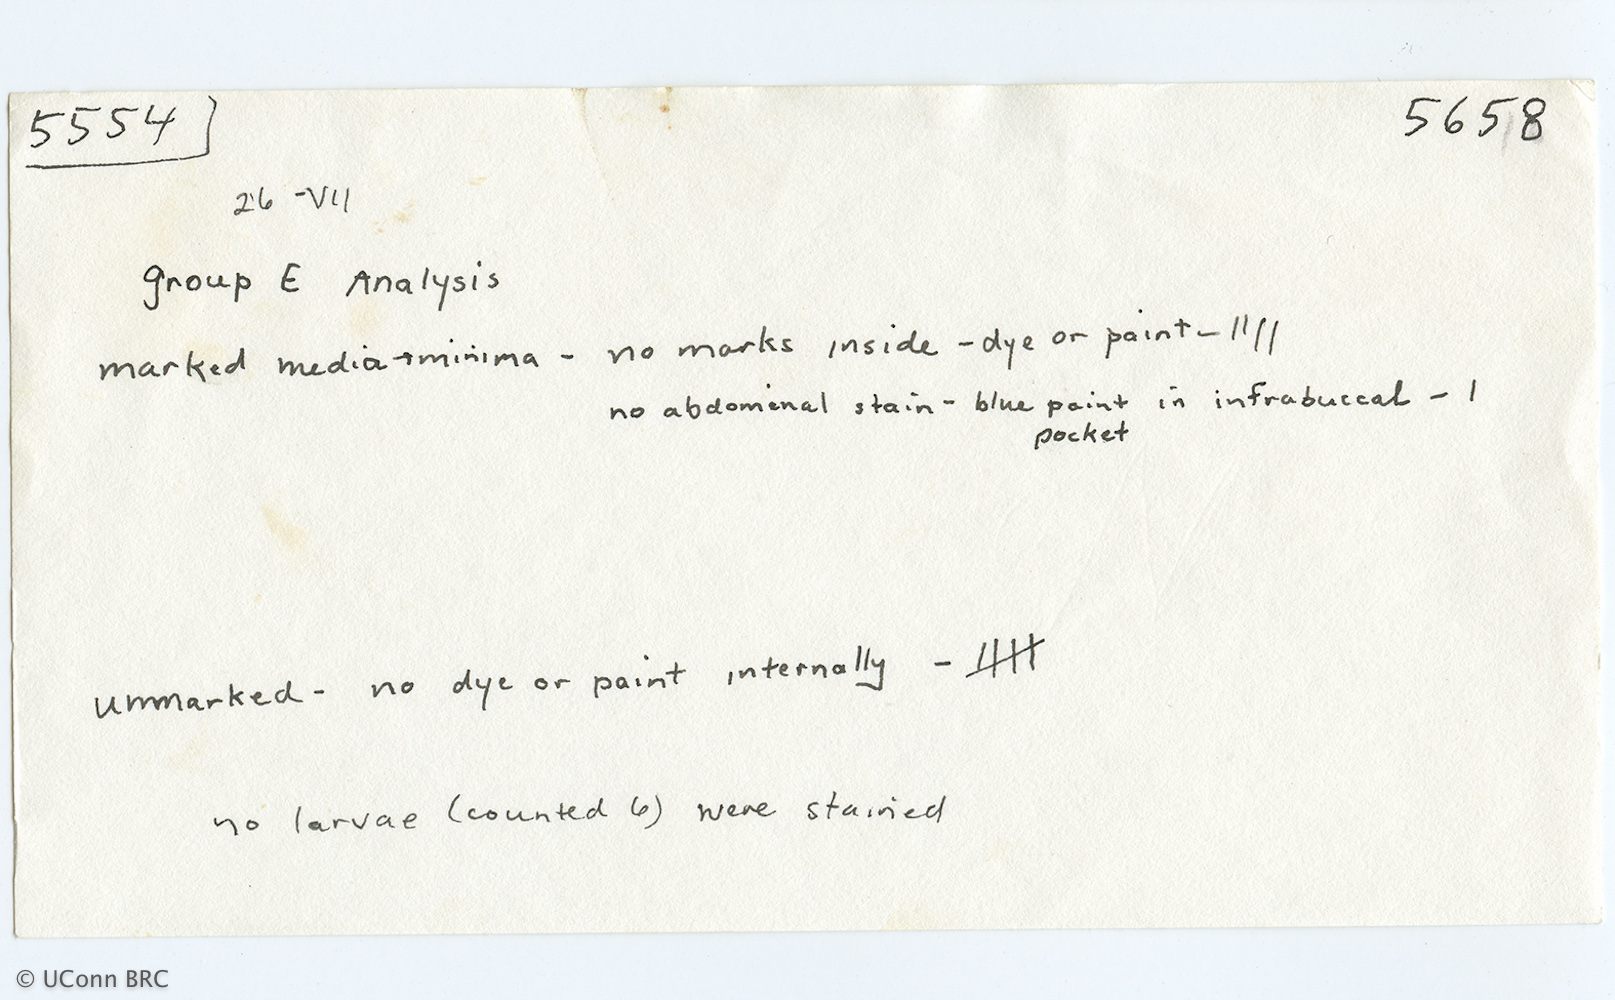 5554
5658
26 -VII
group E Analysis
marked media + minima - no marks inside - dye or paint - ||||
no abdomenal stain - blue paint in infrabuccal - |
pocket
unmarked - no dye or paint internally - 卌
no larvae (counted 6) were stained
© UConn BRC